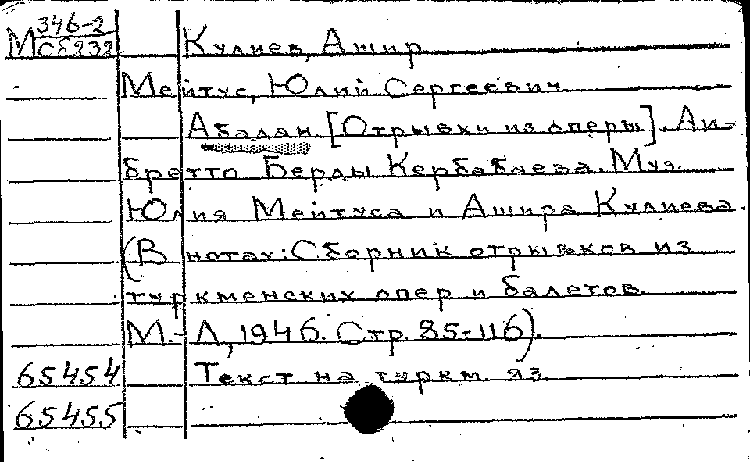 М 346-2 Кулиев, Ашир
Сб 232
Мейтус, Юлий Сергеевич
Абадан. [Отрывки из оперы]. Ли-
бретто Берды Кербабаева. Муз.
Юлия Мейтуса и Ашира Кулиева.
(В нотах: Сборник отрывков из
туркменских опер и балетов.
М.-Л., 1946. Стр. 85-116).
65454 Текст на туркм. яз.
65455